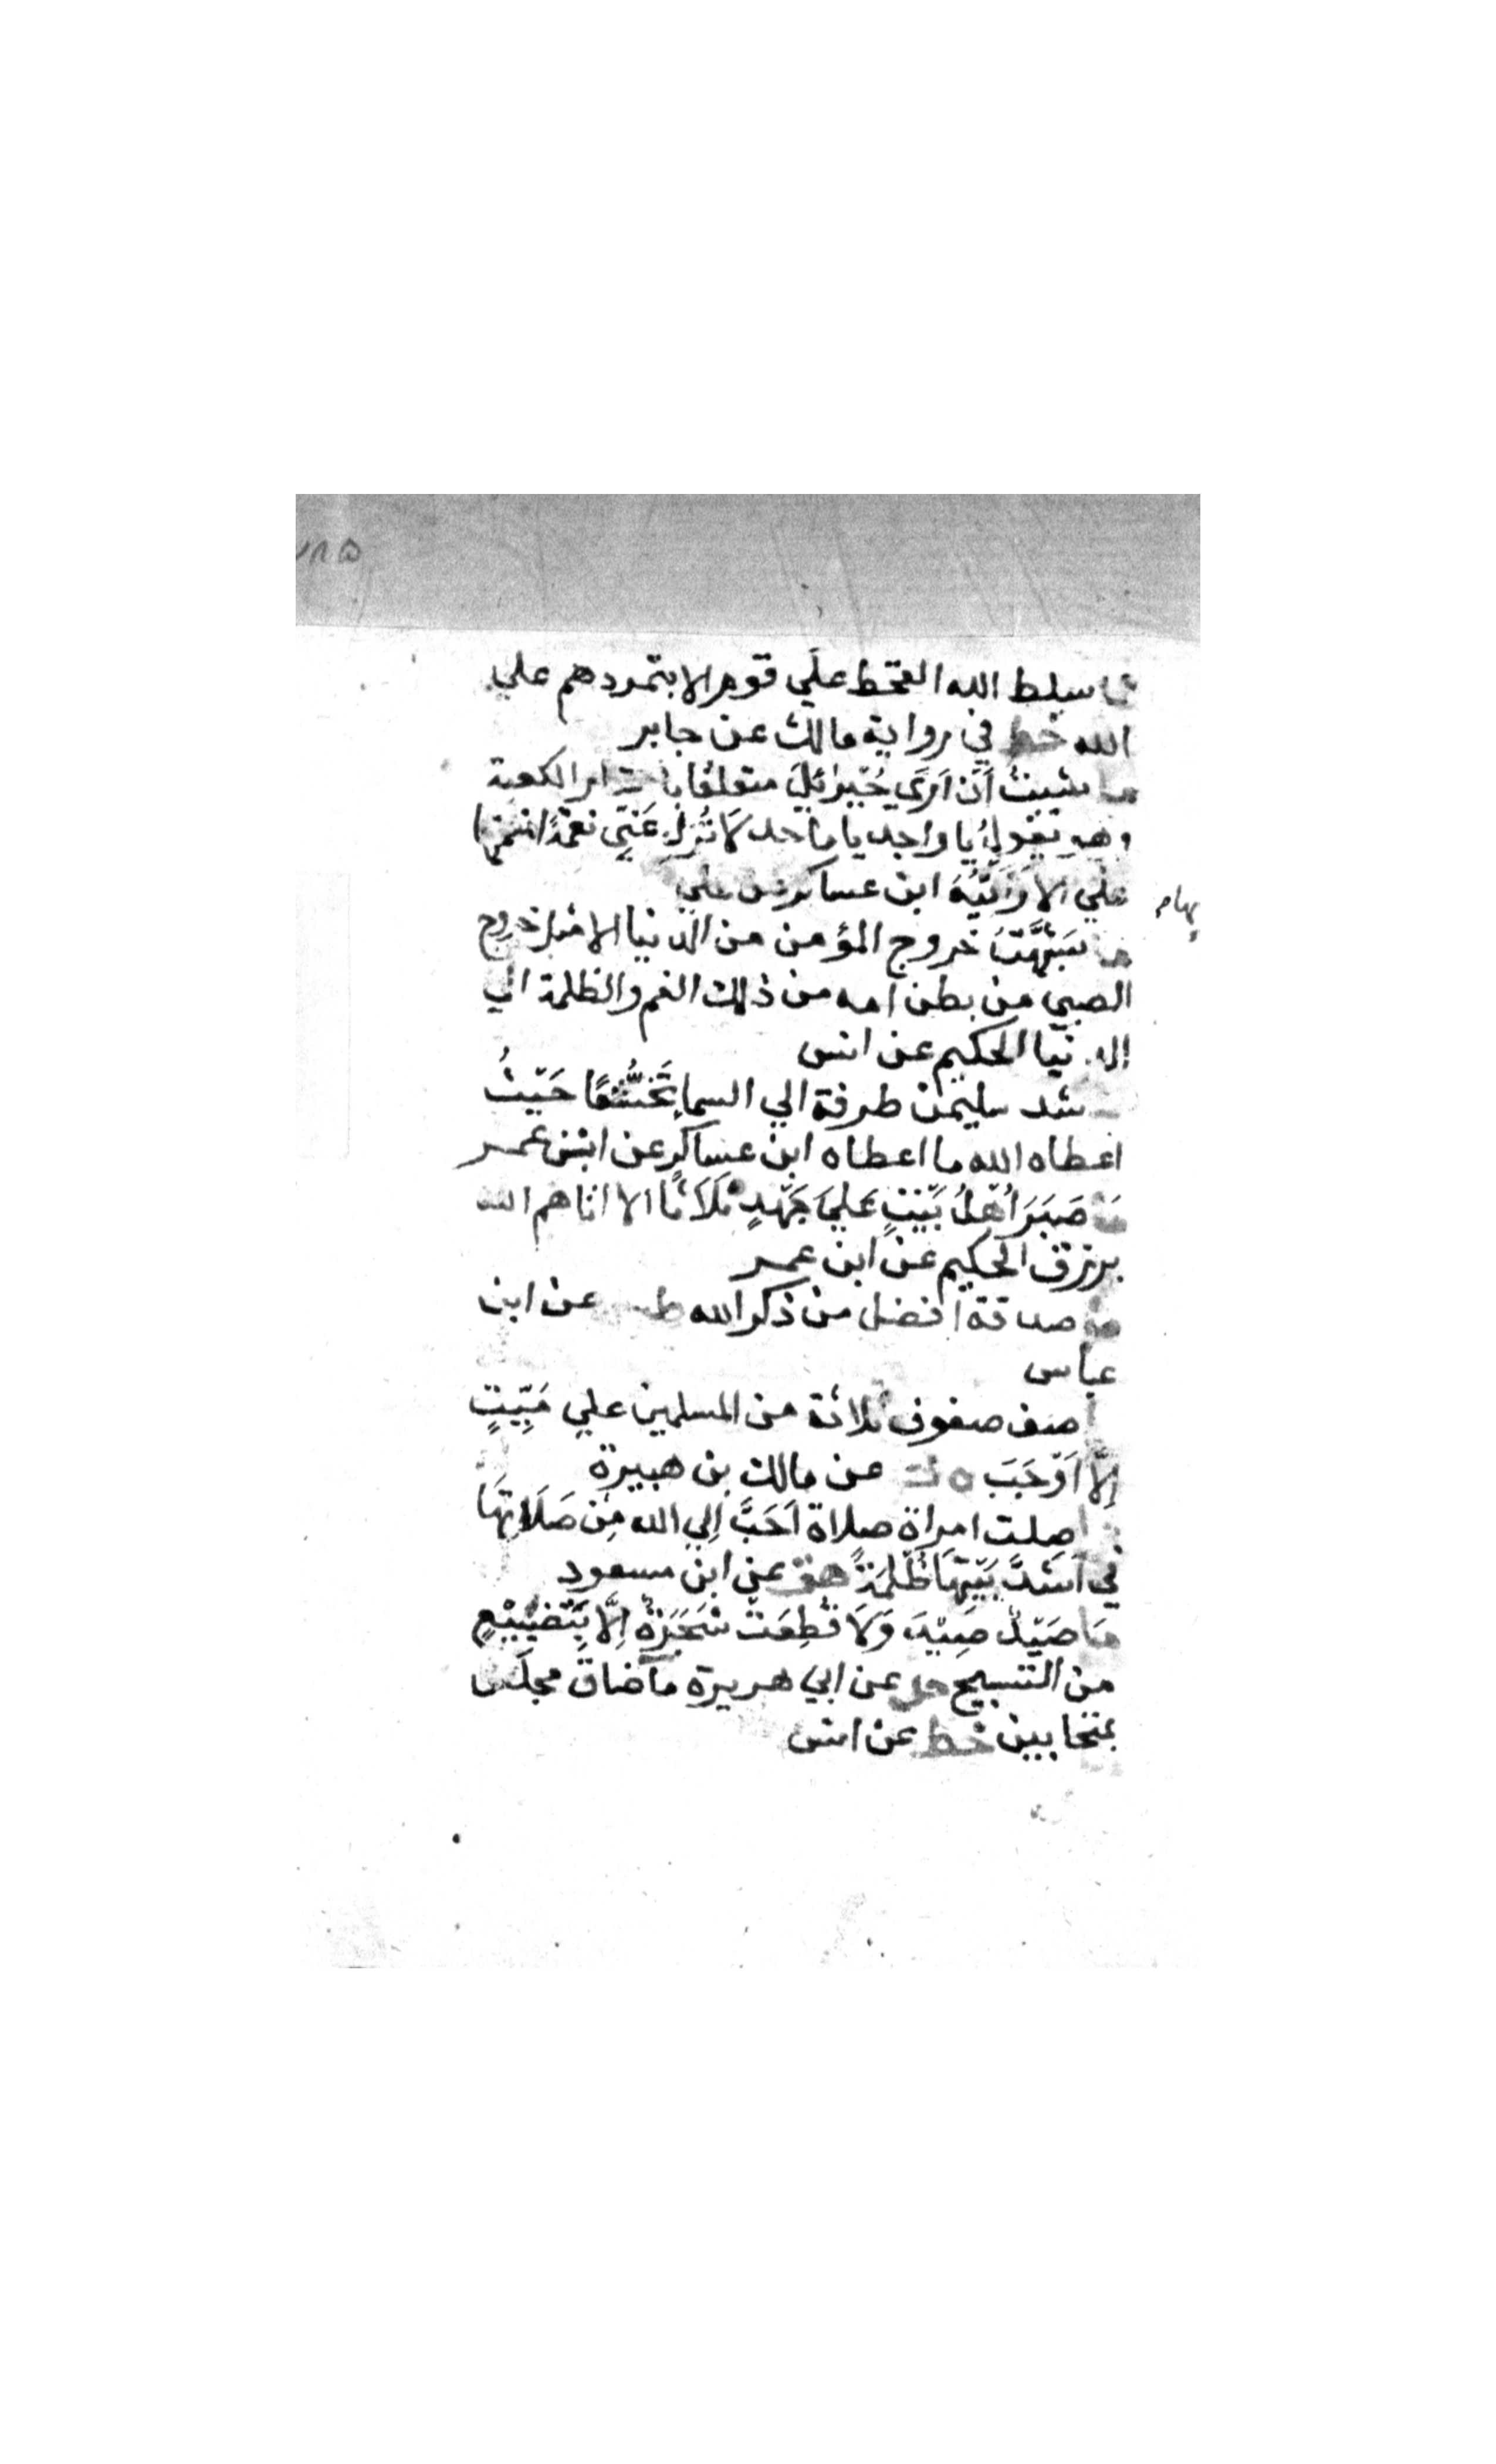 ما سلط الله القحط علي قوم الا بتمردهم علي
الله خط في رواية مالك عن جابر
ما شيتُ أَنْ أَرَي جُبْيرائيلَ متعلقًا باستار الكعبة
وهو يقولُ يا واجد يا ماجد لَا تُزِل عَنِّي نعمةً انعمتها
علي الا رَأَيْتُهُ ابن عساكر عن علي
بهام
ما شَبَّهْتُ خروج المؤمن من الدنيا الا مثل خروج
الصبي من بطن امه من ذلك الغم والظلمة الي
الدنيا الحكيم عن انس
شد سليمن طرفة الي السما تَخَشُّعًا حَيْثُ
اعطاه الله ما اعطاه ابن عساكر عن ابن عمر
ما صَبَرَ اُهْلُ بَيْتٍ عَلَيَ جَهْدٍ ثَلَاثًا الا اتاهم الله
برزق الحكيم عن ابن عمر
ما صدقة افضل من ذكر الله طب عن ابن
عباس
ما صف صفوف ثلاثة من المسلمين علي مَيِّتٍ
إِلَّا أَوْجَبَ ه ك عن مالك بن هبيرة
ما صلت امراة صلاة اَحَبَّ إِلي الله مِنْ صَلَاتِهَا
في اَشَدِّ بَيْتِهَا ظُلْمَةً هق عن ابن مسعود
مَا صَيْدٌ صِيْدَ وَلَا قُطِعَتْ شَجَرَةٌ اِلَّا بِتَضْيِيْعٍ
من التسبيح حل عن ابي هريرة ما ضاق مجلس
بمتحابين خط عن انس